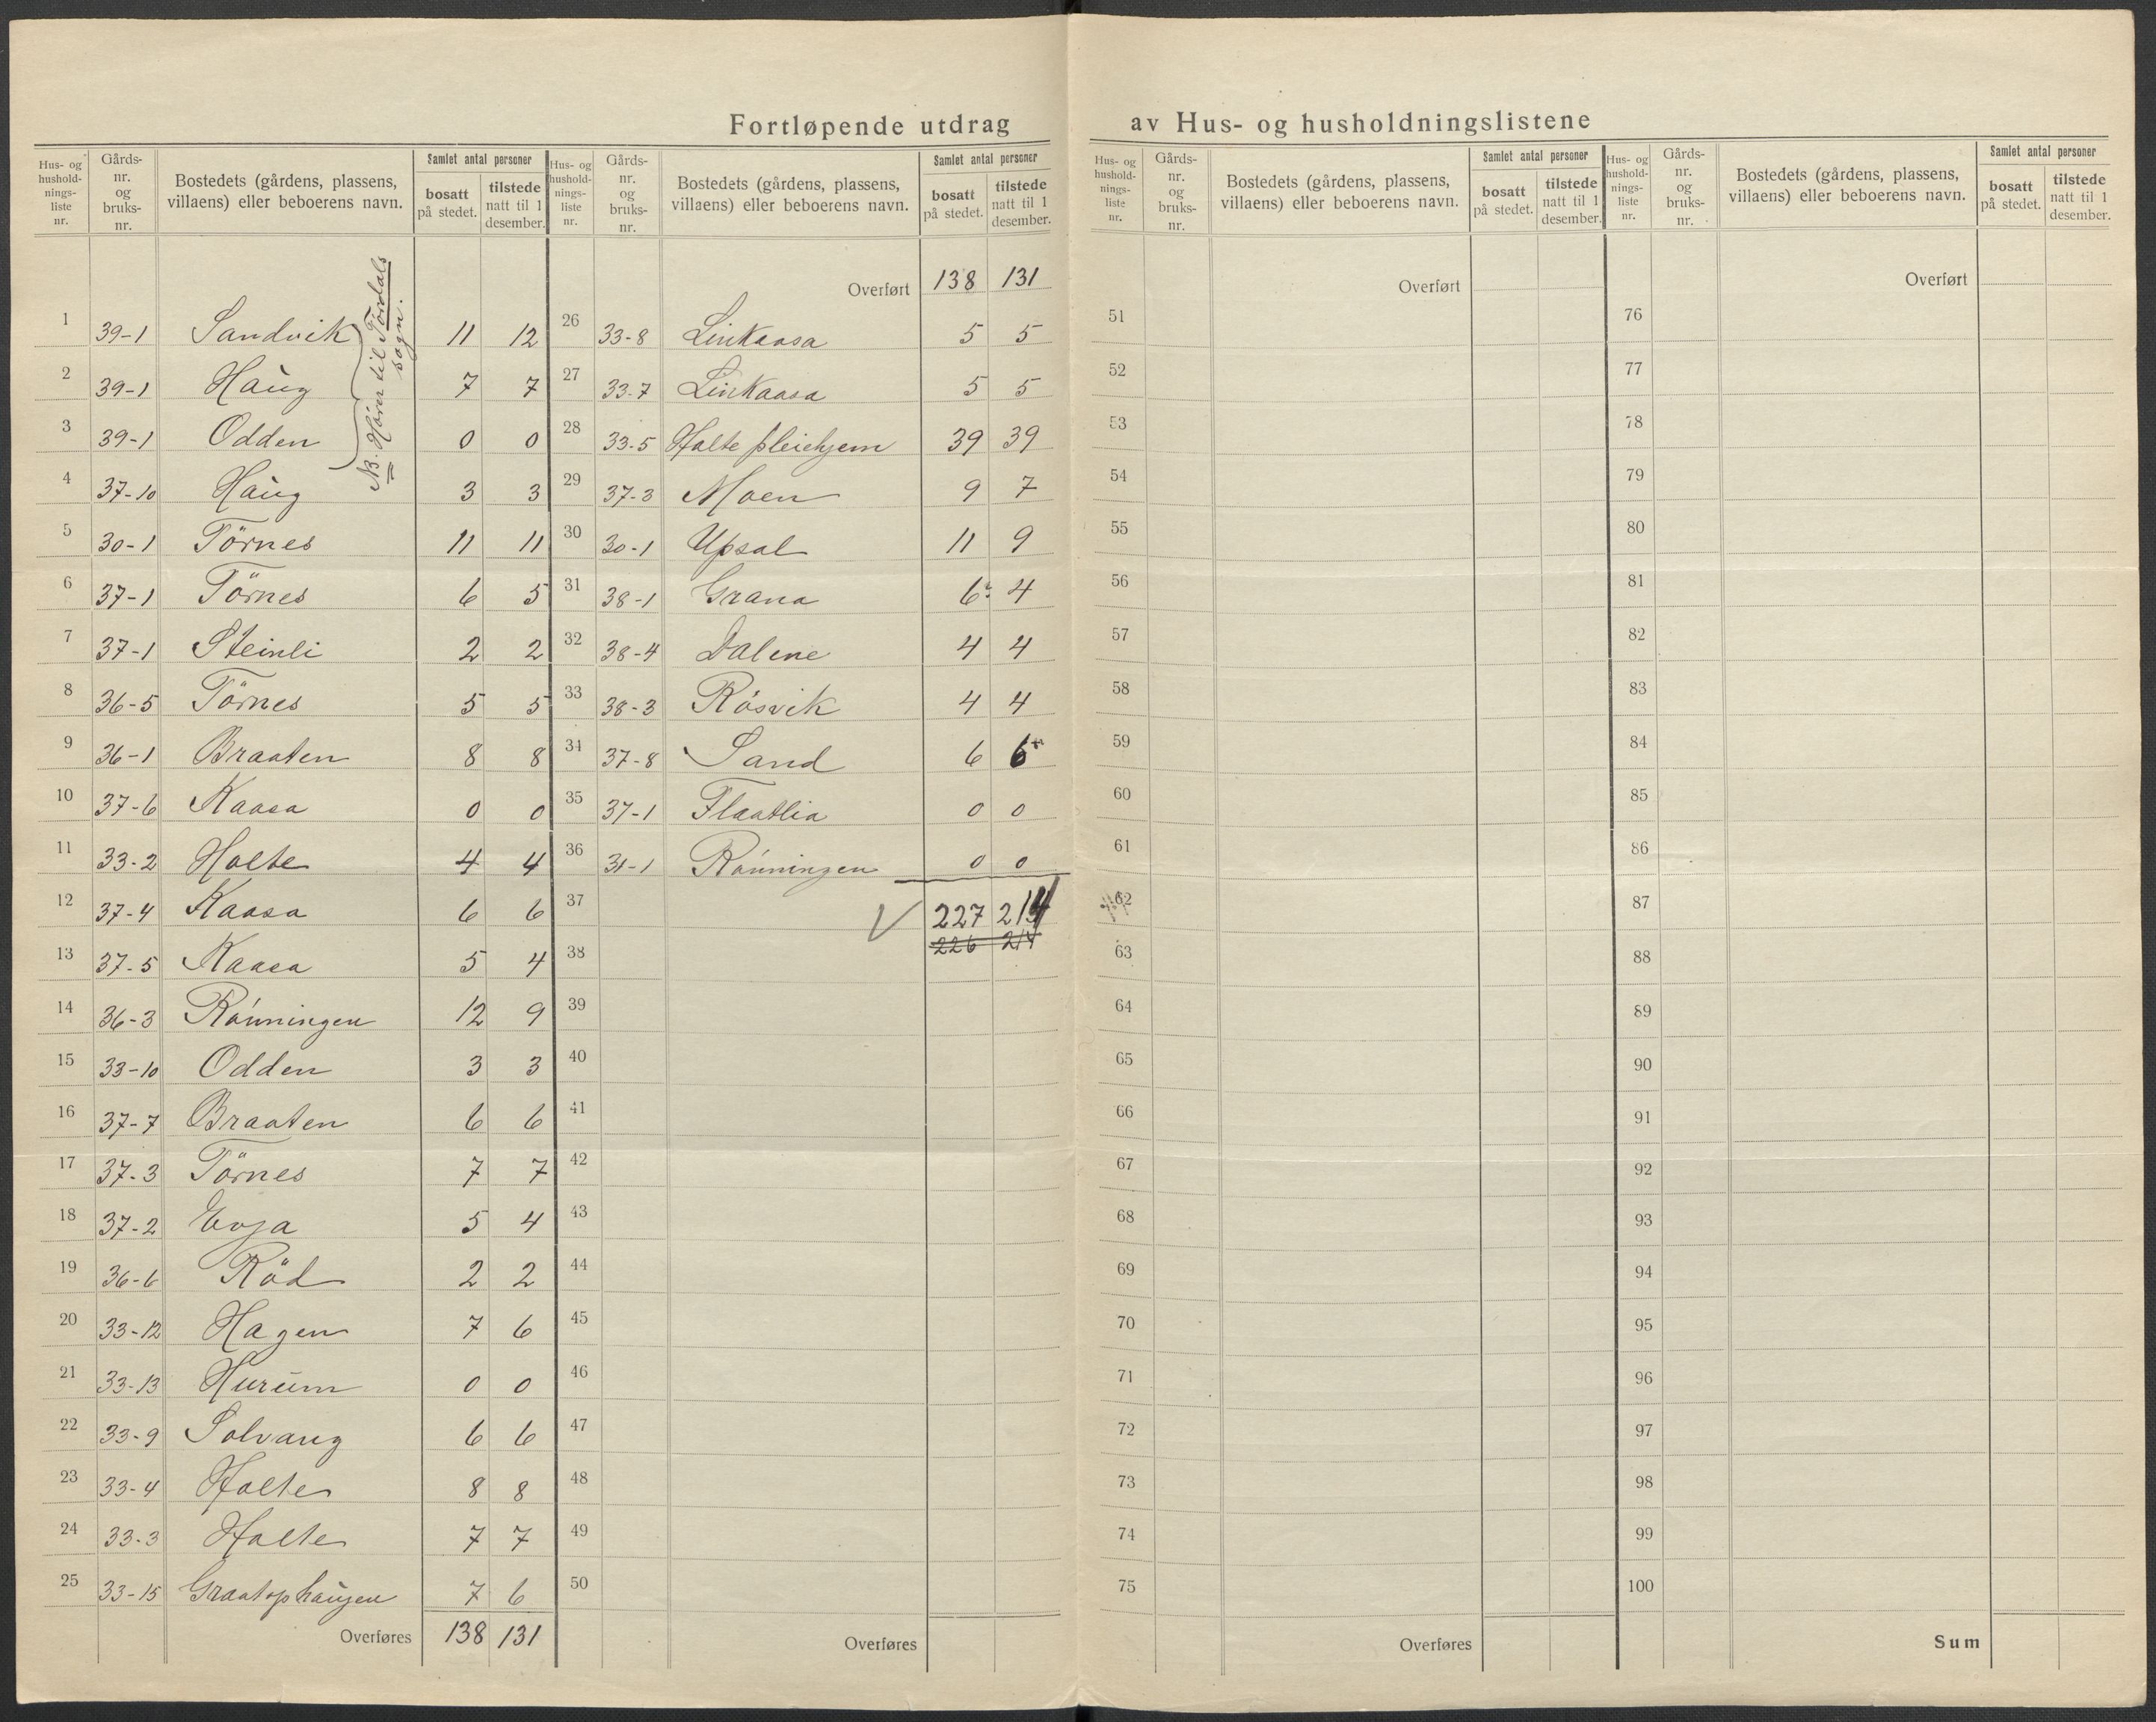 Fortløpende utdrag av Hus- og husholdningslistene
Hus- og hushold-nings-liste nr. Gårds-nr. og bruks-nr. Bostedets (gårdens, plassens, villaens) eller beboerens navn. Samlet antal personer bosatt på stedet. tilstede natt til 1 desember.
NB. Hører til Tørdals sogn.
1 39-1 Sandvik 11 12
2 39-1 Haug 7 7
3 39-1 Odden 0 0
4 37-10 Haug 3 3
5 30-1 Törnes 11 11
6 37-1 Törnes 6 5
7 37-1 Steinli 2 2
8 36-5 Törnes 5 5
9 36-1 Braaten 8 8
10 37-6 Kaasa 0 0
11 33-2 Holte 4 4
12 37-4 Kaasa 6 6
13 37-5 Kaasa 5 4
14 36-3 Rónningen 12 9
15 33-10 Odden 3 3
16 37-7 Braaten 6 6
17 37-3 Törnes 7 7
18 37-2 Evja 5 4
19 36-6 Röd 2 2
20 33-12 Hagen 7 6
21 33-13 Hurum 0 0
22 33-9 Solvang 6 6
23 33-4 Holte 8 8
24 33-3 Holte 7 7
25 33-15 Graatophaugen 7 6
Overføres 138 131
Hus- og hushold-nings-liste nr. Gårds-nr. og bruks-nr. Bostedets (gårdens, plassens, villaens) eller beboerens navn. Samlet antal personer bosatt på stedet. tilstede natt til 1 desember.
Overført 138 131
26 33-8 Linkaasa 5 5
27 33-7 Linkaasa 5 5
28 33-5 Holte pleiehjem 39 39
29 37-3 Moen 9 7
30 30-1 Upsal 11 9
31 38-1 Grana 6 4
32 38-4 Dalene 4 4
33 38-3 Rósvik 4 4
34 37-8 Sand 6 6
35 37-1 Flaatlia 0 0
36 31-1 Rónningen 0 0
37 227 214
38 226 214
39
40
41
42
43
44
45
46
47
48
49
50
Overføres
Hus- og hushold-nings-liste nr. Gårds-nr. og bruks-nr. Bostedets (gårdens, plassens, villaens) eller beboerens navn. Samlet antal personer bosatt på stedet. tilstede natt til 1 desember.
Overført
51
52
53
54
55
56
57
58
59
60
61
62
63
64
65
66
67
68
69
70
71
72
73
74
75
Overføres
Hus- og hushold-nings-liste nr. Gårds-nr. og bruks-nr. Bostedets (gårdens, plassens, villaens) eller beboerens navn. Samlet antal personer bosatt på stedet. tilstede natt til 1 desember.
Overført
76
77
78
79
80
81
82
83
84
85
86
87
88
89
90
91
92
93
94
95
96
97
98
99
100
Sum